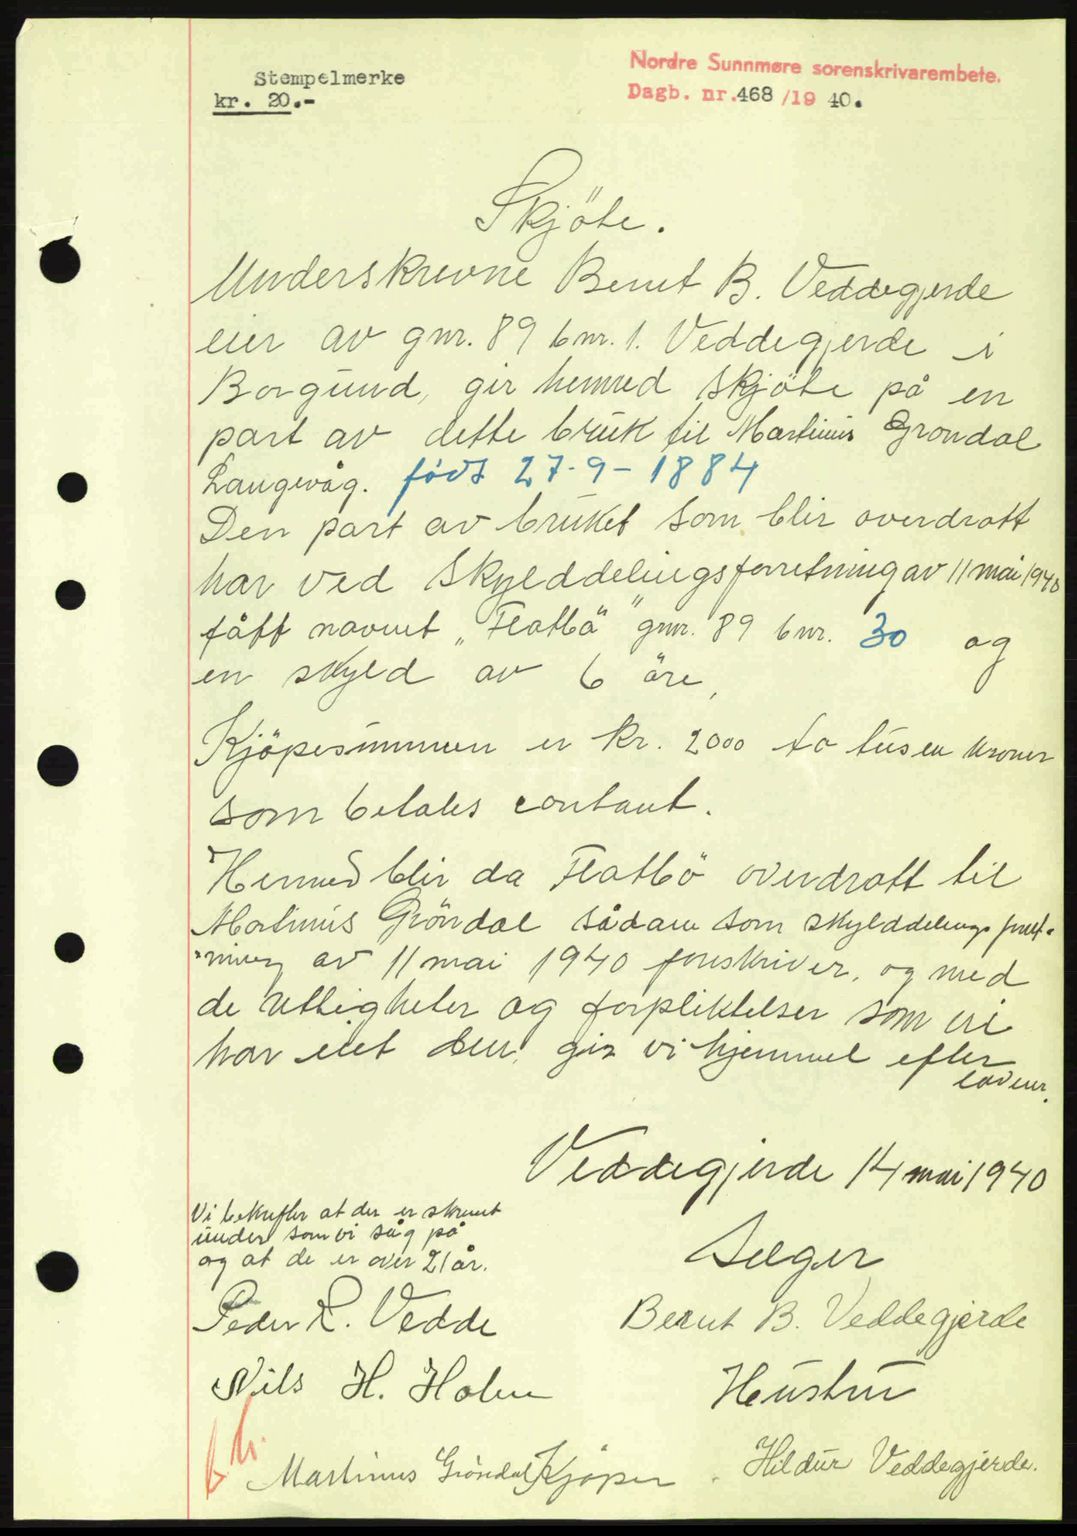 Stempelmerke
kr. 20.-
Nordre Sunnmøre sorenskrivarembete.
Dagb. nr. 468 /19 40.
Skjöte.
Underskrevne Bernt B. Veddegjerde
eier av gnr. 89 bnr. 1. Veddegjerde i
Borgund, gir hermed skjöte på en
part av dette bruk til Martinus Grøndal
Langevåg. født 27-9-1884
Den part av bruket som blir overdratt
har ved Skylddelingsforretning av 11 mai 1940
fått navnet "Flatbö" gnr. 89 bnr. 30 og
en skyld av 6 öre,
Kjöpesummen er kr. 2000 to tusen kroner
som betales contant.
Hermed blir da Flatbö overdratt til
Martinus Gröndal sådan som skylddelings forret-
ning av 11 mai 1940 foreskriver, og med
de rettigheter og forpliktelser som vi
har eiet den, gir vi hjemmel efter
loven.
Veddegjerde 14 mai 1940
Vi bekrefter at der er skrevet
under som vi såg på
og at de er over 21 år.
Selger
Peder R. Vedde
Bernt B. Veddegjerde
Nils H. Holen
Hustru
Martinus Gröndal Kjöper
Hildur Veddegjerde.